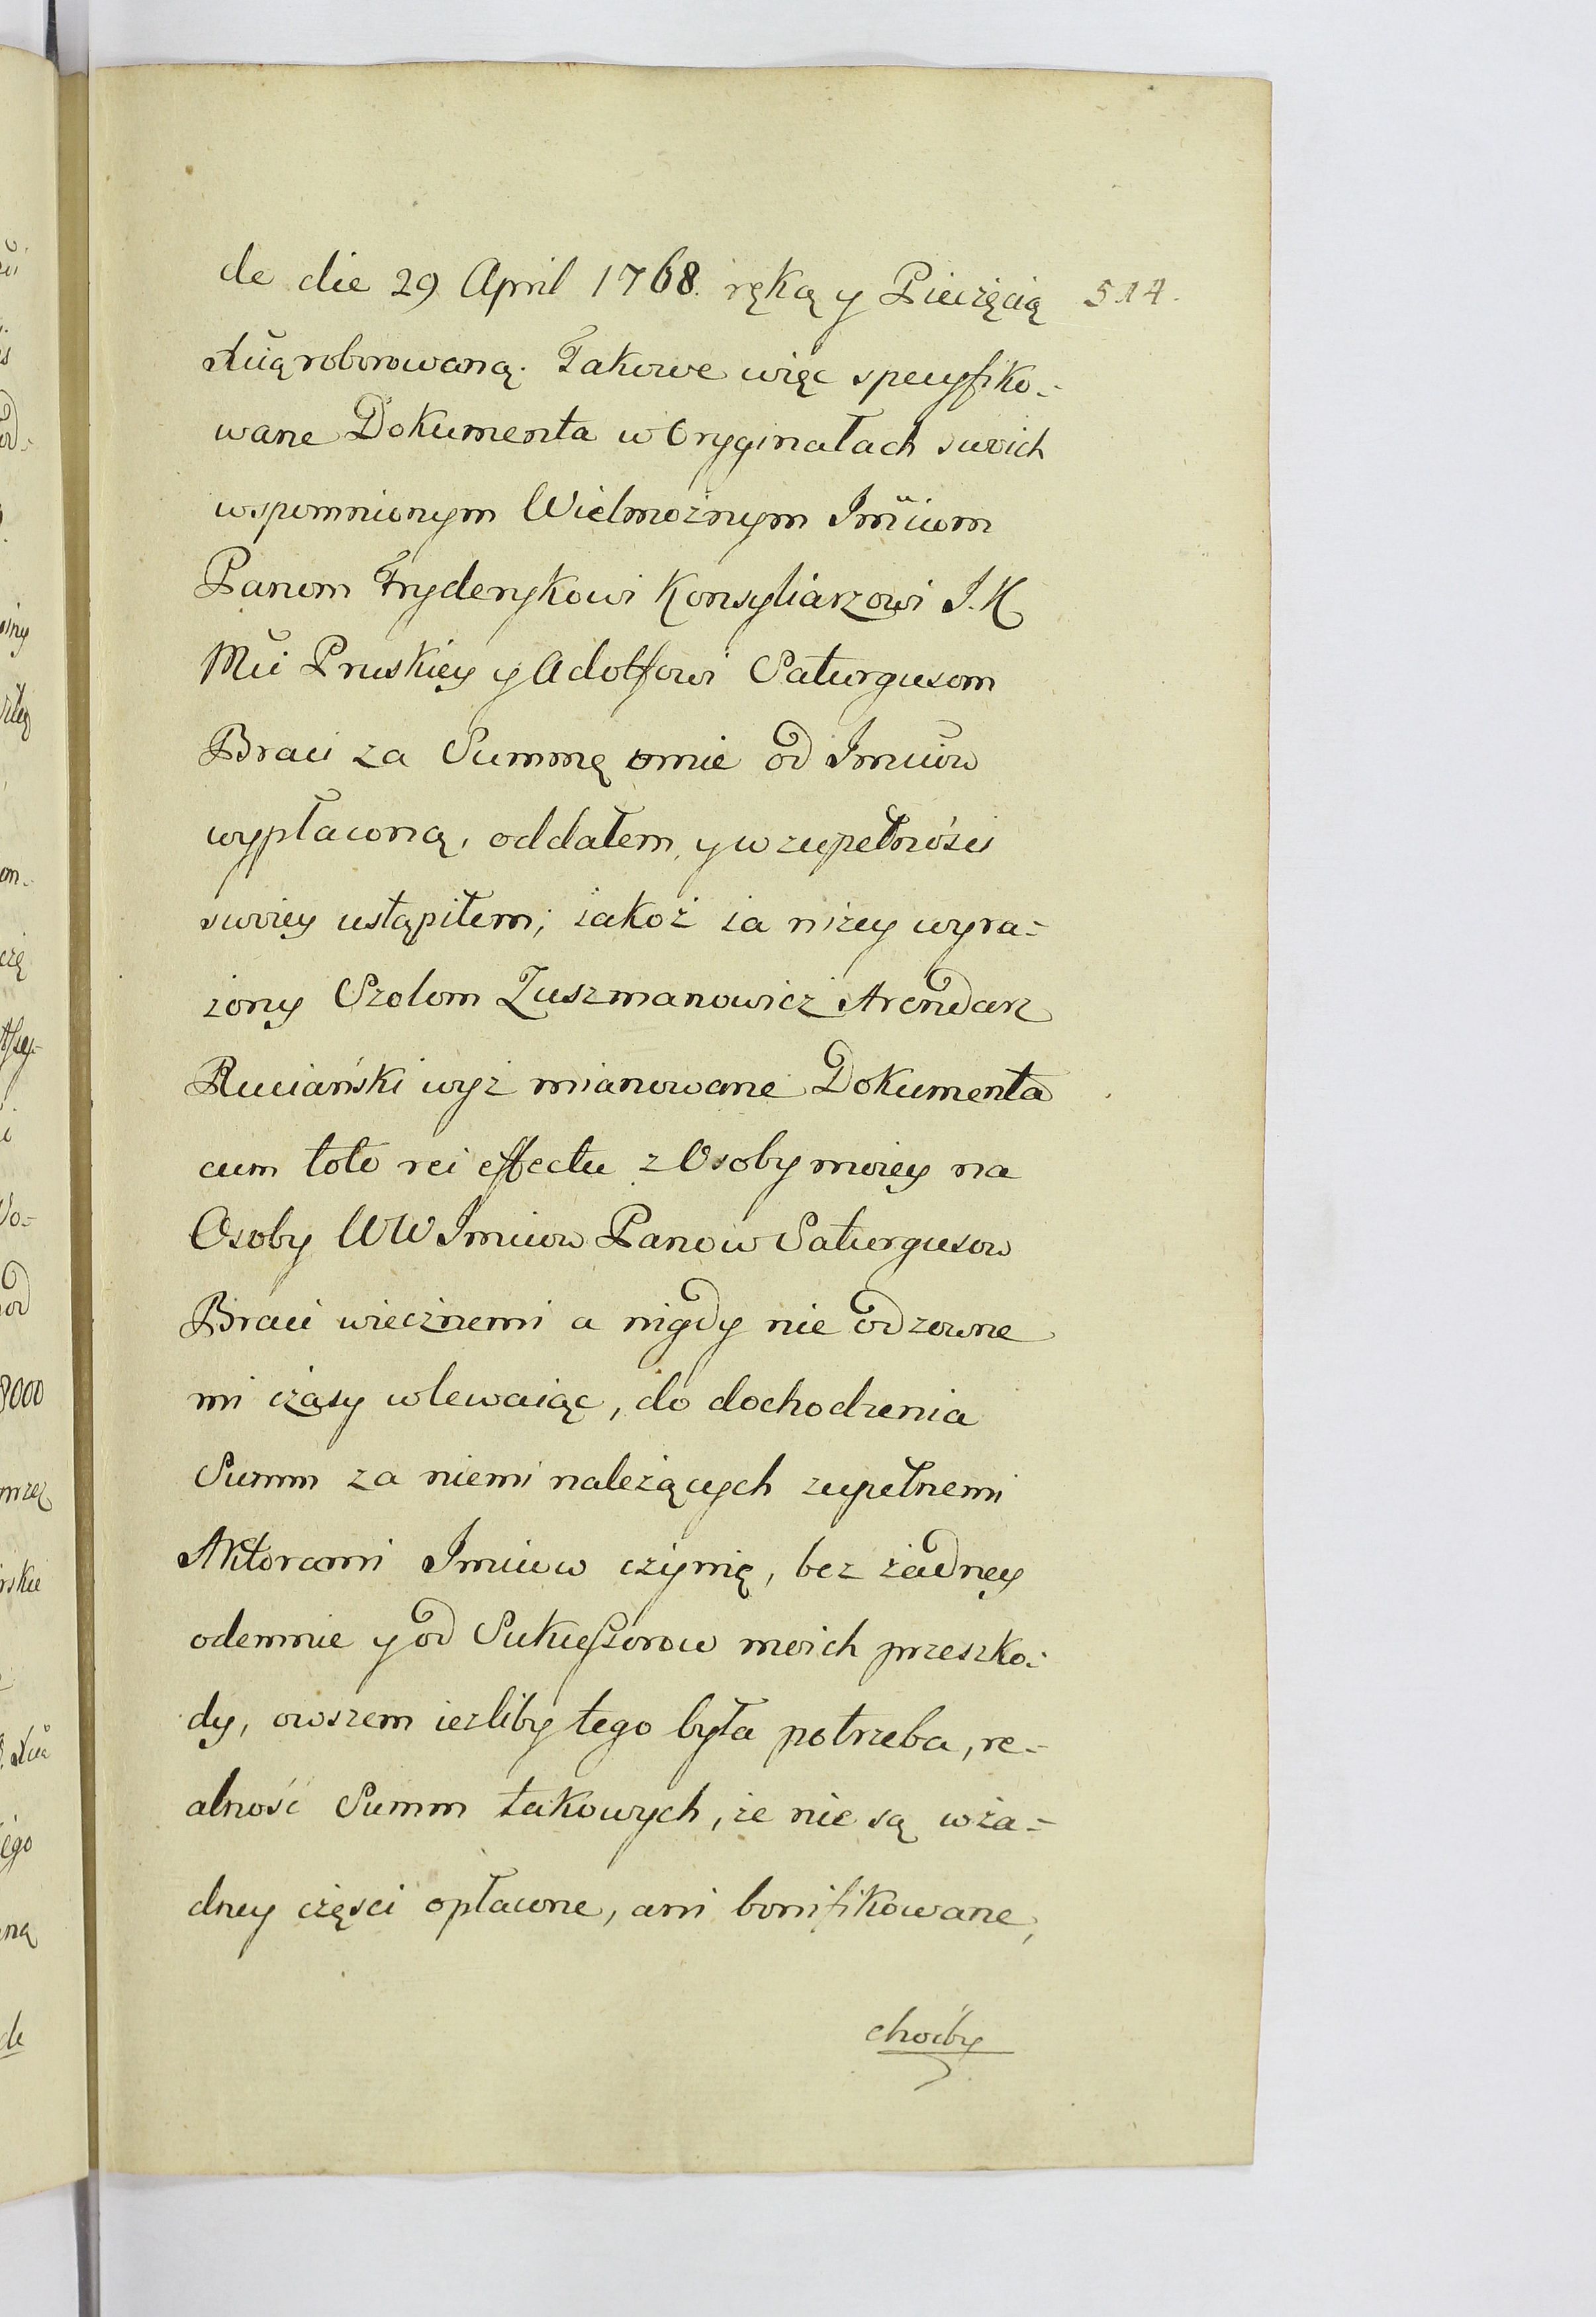 de die 29 April 1768. ręką y Pieczęcią 514.
Xcią roborowaną. Takowe więc specyfiko-
wane Dokumenta w Oryginałach swoich
wspomnionym Wielmożnym Imciom
Panom Fryderykowi Konsyliarzowi J. K
Mci Pruskiey y Adolfowi Saturgusom
Braci za Summę mnie od Imciow
wypłaconą, oddałem, y w zupełności
swoiey ustąpiłem; iakoż ia niżey wyra-
żony Szolom Zuszmanowicz Arendarz
Ruciański wyż mianowane Dokumenta
cum toto rei effectu z Osoby moiey na
Osoby WW Imciow Panow Saturgusow
Braci wiecznemi a nigdy nie odzowne
mi czasy wlewaiąc, do dochodzenia
Summ za niemi należących zupełnemi
Aktorami Imciow czynię, bez żadney
odemnie y od Sukceßorow moich przeszko-
dy, owszem ieżliby tego była potrzeba, re-
alność Summ takowych, że nie są w ża-
dney częsci opłacone, ani bonifikowane,
choćby